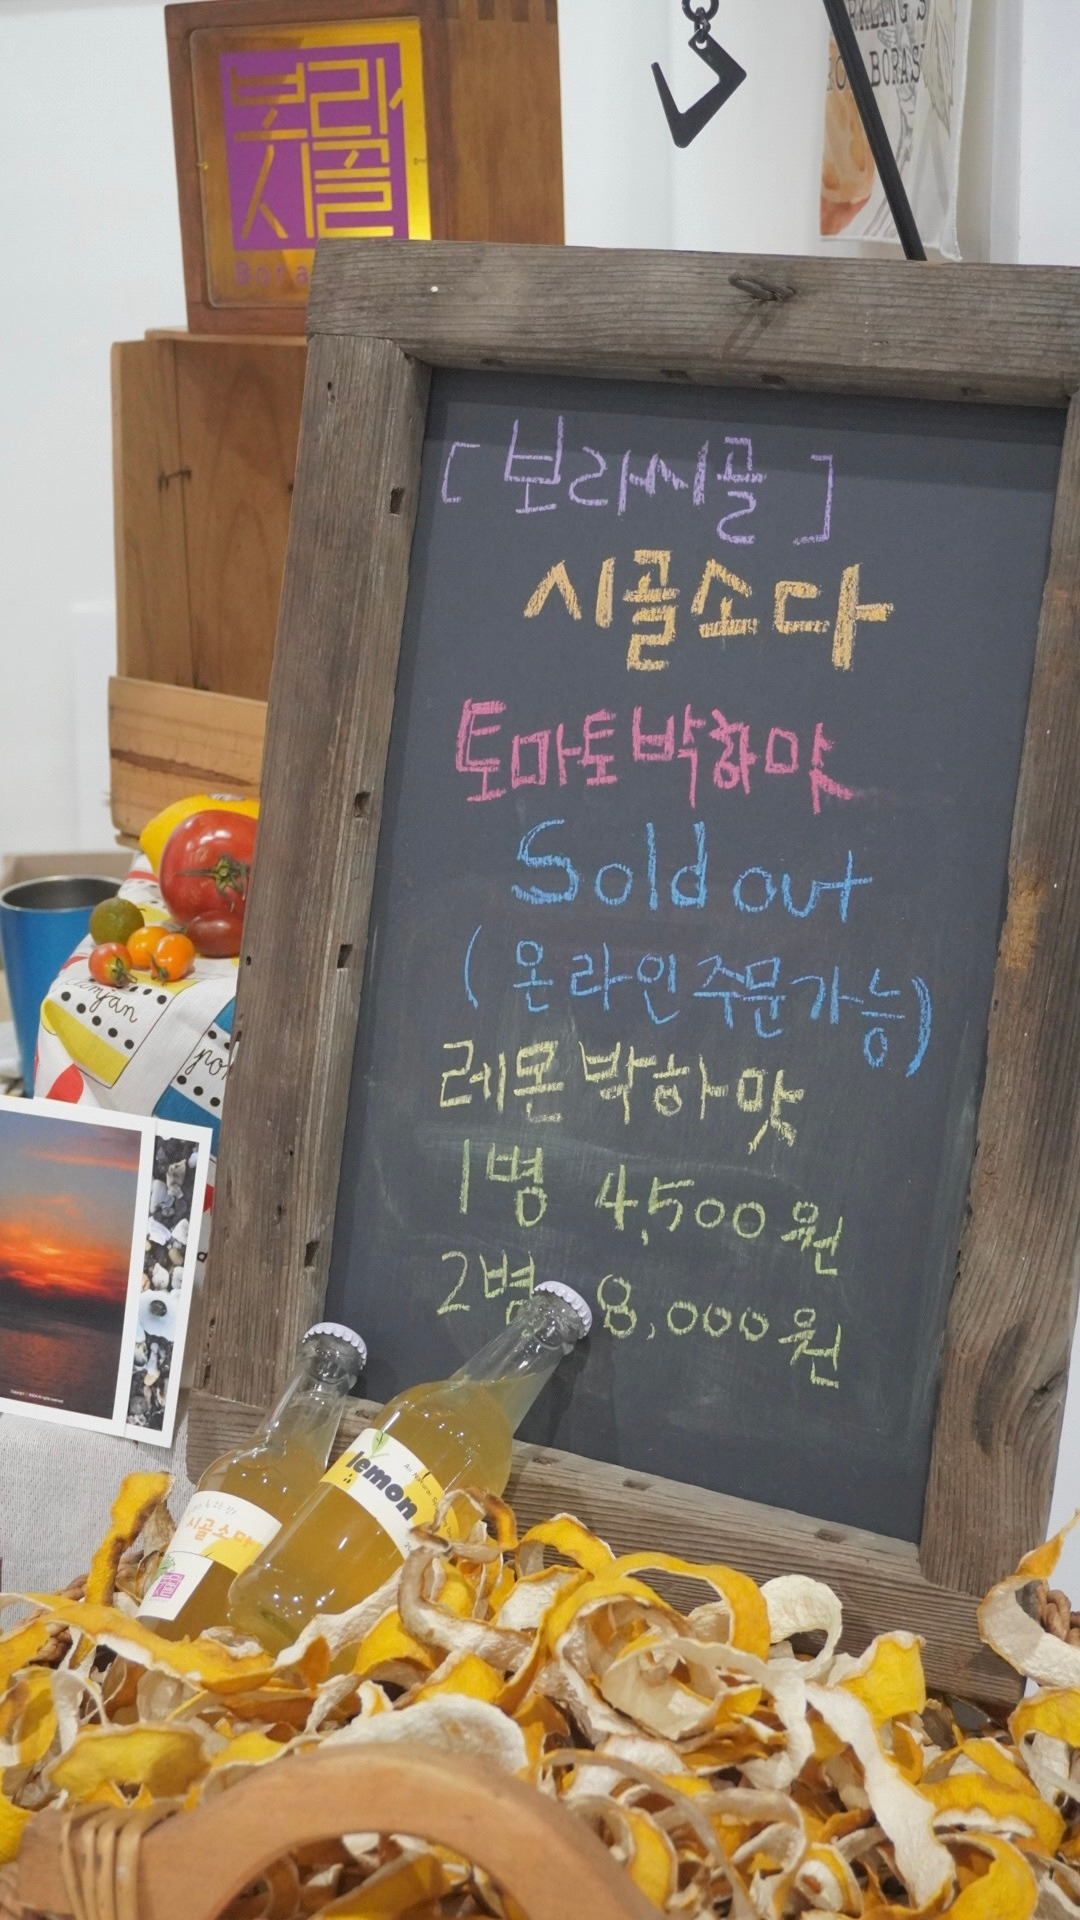 보라
시골
Bora
BORAS
[보라시골]
시골소다
토마토박하맛
Sold out
(온라인주문가능)
레몬박하맛
1병 4,500원
2병 8,000원
lemon
시골소다